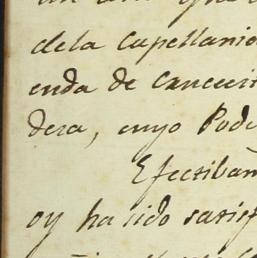 dela Capellani
enda de Cance
dera, cuyo Pod
Efectiba
oy ha sido satisf